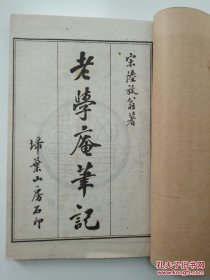 宋陸放翁著
老學庵筆記
埽葉山房石印